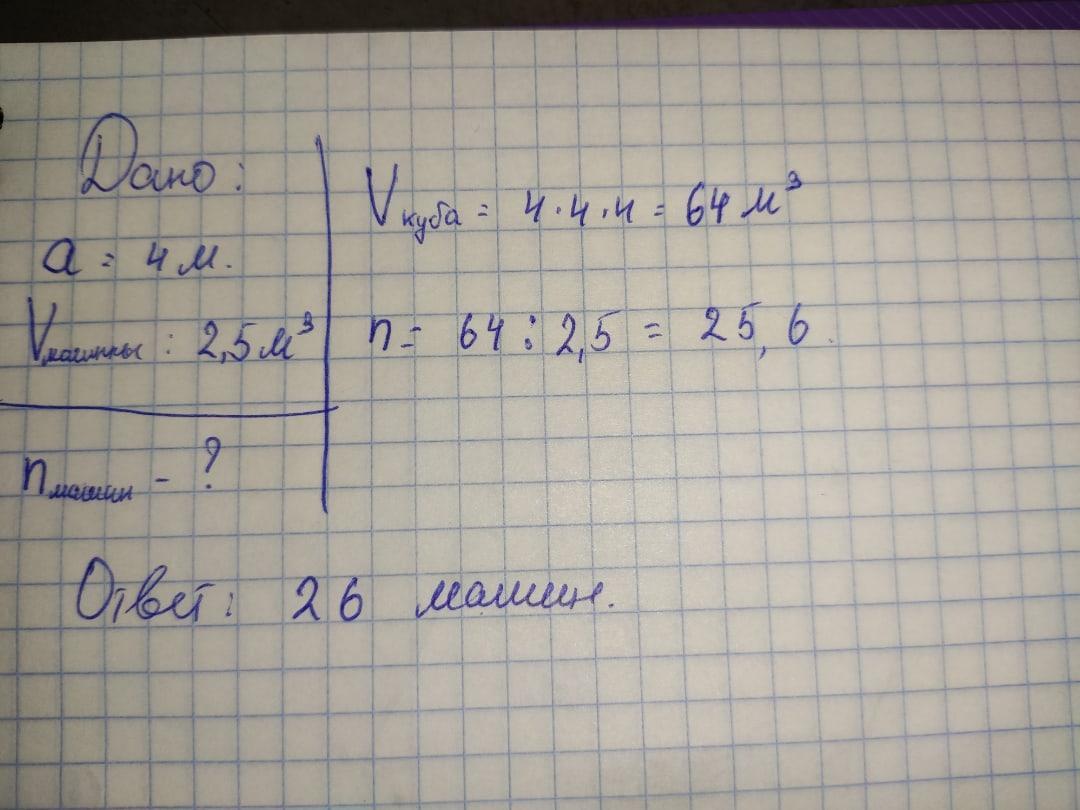 Дано:
a = 4 м.
Vмашины : 2,5 м³
nмашин - ?
Vкуба = 4·4·4 = 64 м³
n = 64 : 2,5 = 25,6.
Ответ: 26 машин.